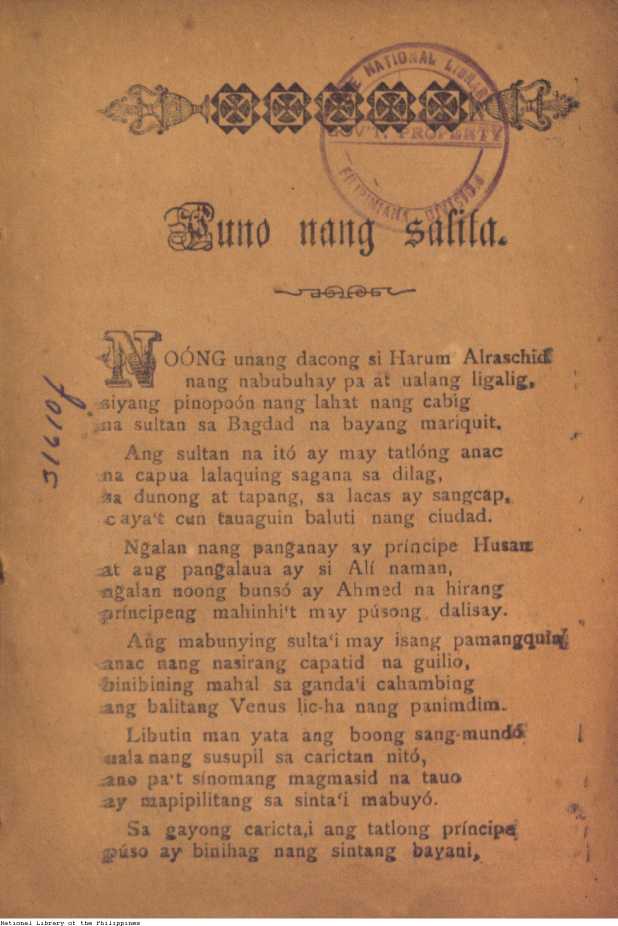 THE NATIONAL LIBRARY
GOV'T. PROPERTY
FILIPINIANA DIVISION
Puno nang salita.
31610f
NOÓNG unang dacong si Harum Alraschid
nang nabubuhay pa at ualang ligalig,
siyang pinopoón nang lahat nang cabig
na sultan sa Bagdad na bayang mariquit.
Ang sultan na itó ay may tatlóng anac
na capua lalaquing sagana sa dilag,
sa dunong at tapang, sa lacas ay sangcap,
caya‘t cun tauaguin baluti nang ciudad.
Ngalan nang panganay ay príncipe Husam
at aug pangalaua ay si Alí naman,
ngalan noong bunsó ay Ahmed na hirang
príncipeng mahinhi‘t may púsong dalisay.
Ang mabunying sulta‘i may isang pamangquin,
anac nang nasirang capatid na guilio,
binibining mahal sa ganda‘i cahambing
ang balitang Venus lic-ha nang panimdim.
Libutin man yata ang boong sang-mundó
uala nang susupil sa carictan nitó,
ano pa‘t sínomang magmasid na tauo
ay mapipilitang sa sinta‘i mabuyó.
Sa gayong caricta,i ang tatlong príncipe
púso ay binihag nang sintang bayani,
National Library of the Philippines